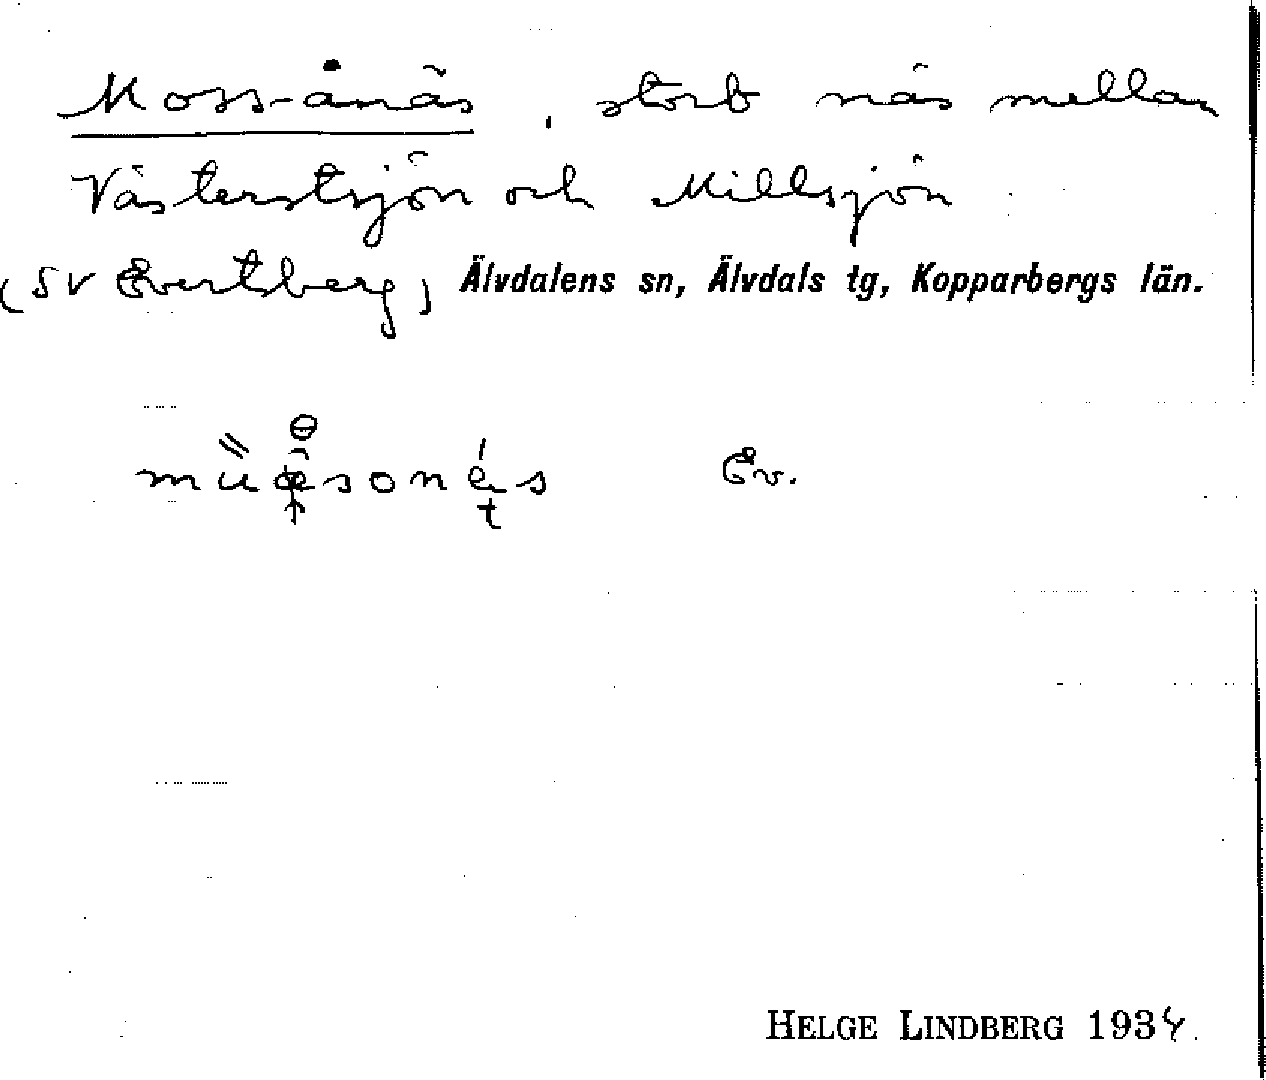 Moss-ånäs, stort näs mellan
Västerstsjön och Millsjön
(SV Evertsberg) Älvdalens sn, Älvdals tg, Kopparbergs län.
Ev.
HELGE LINDBERG 1934.